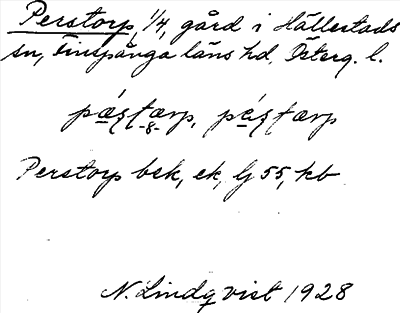 Perstorp, 1/4, gård i Hällestads
sn, Finspånga läns hd. Österg. l.
Perstorp bsk, ek, Lj 55, kb
N. Lindqvist 1928